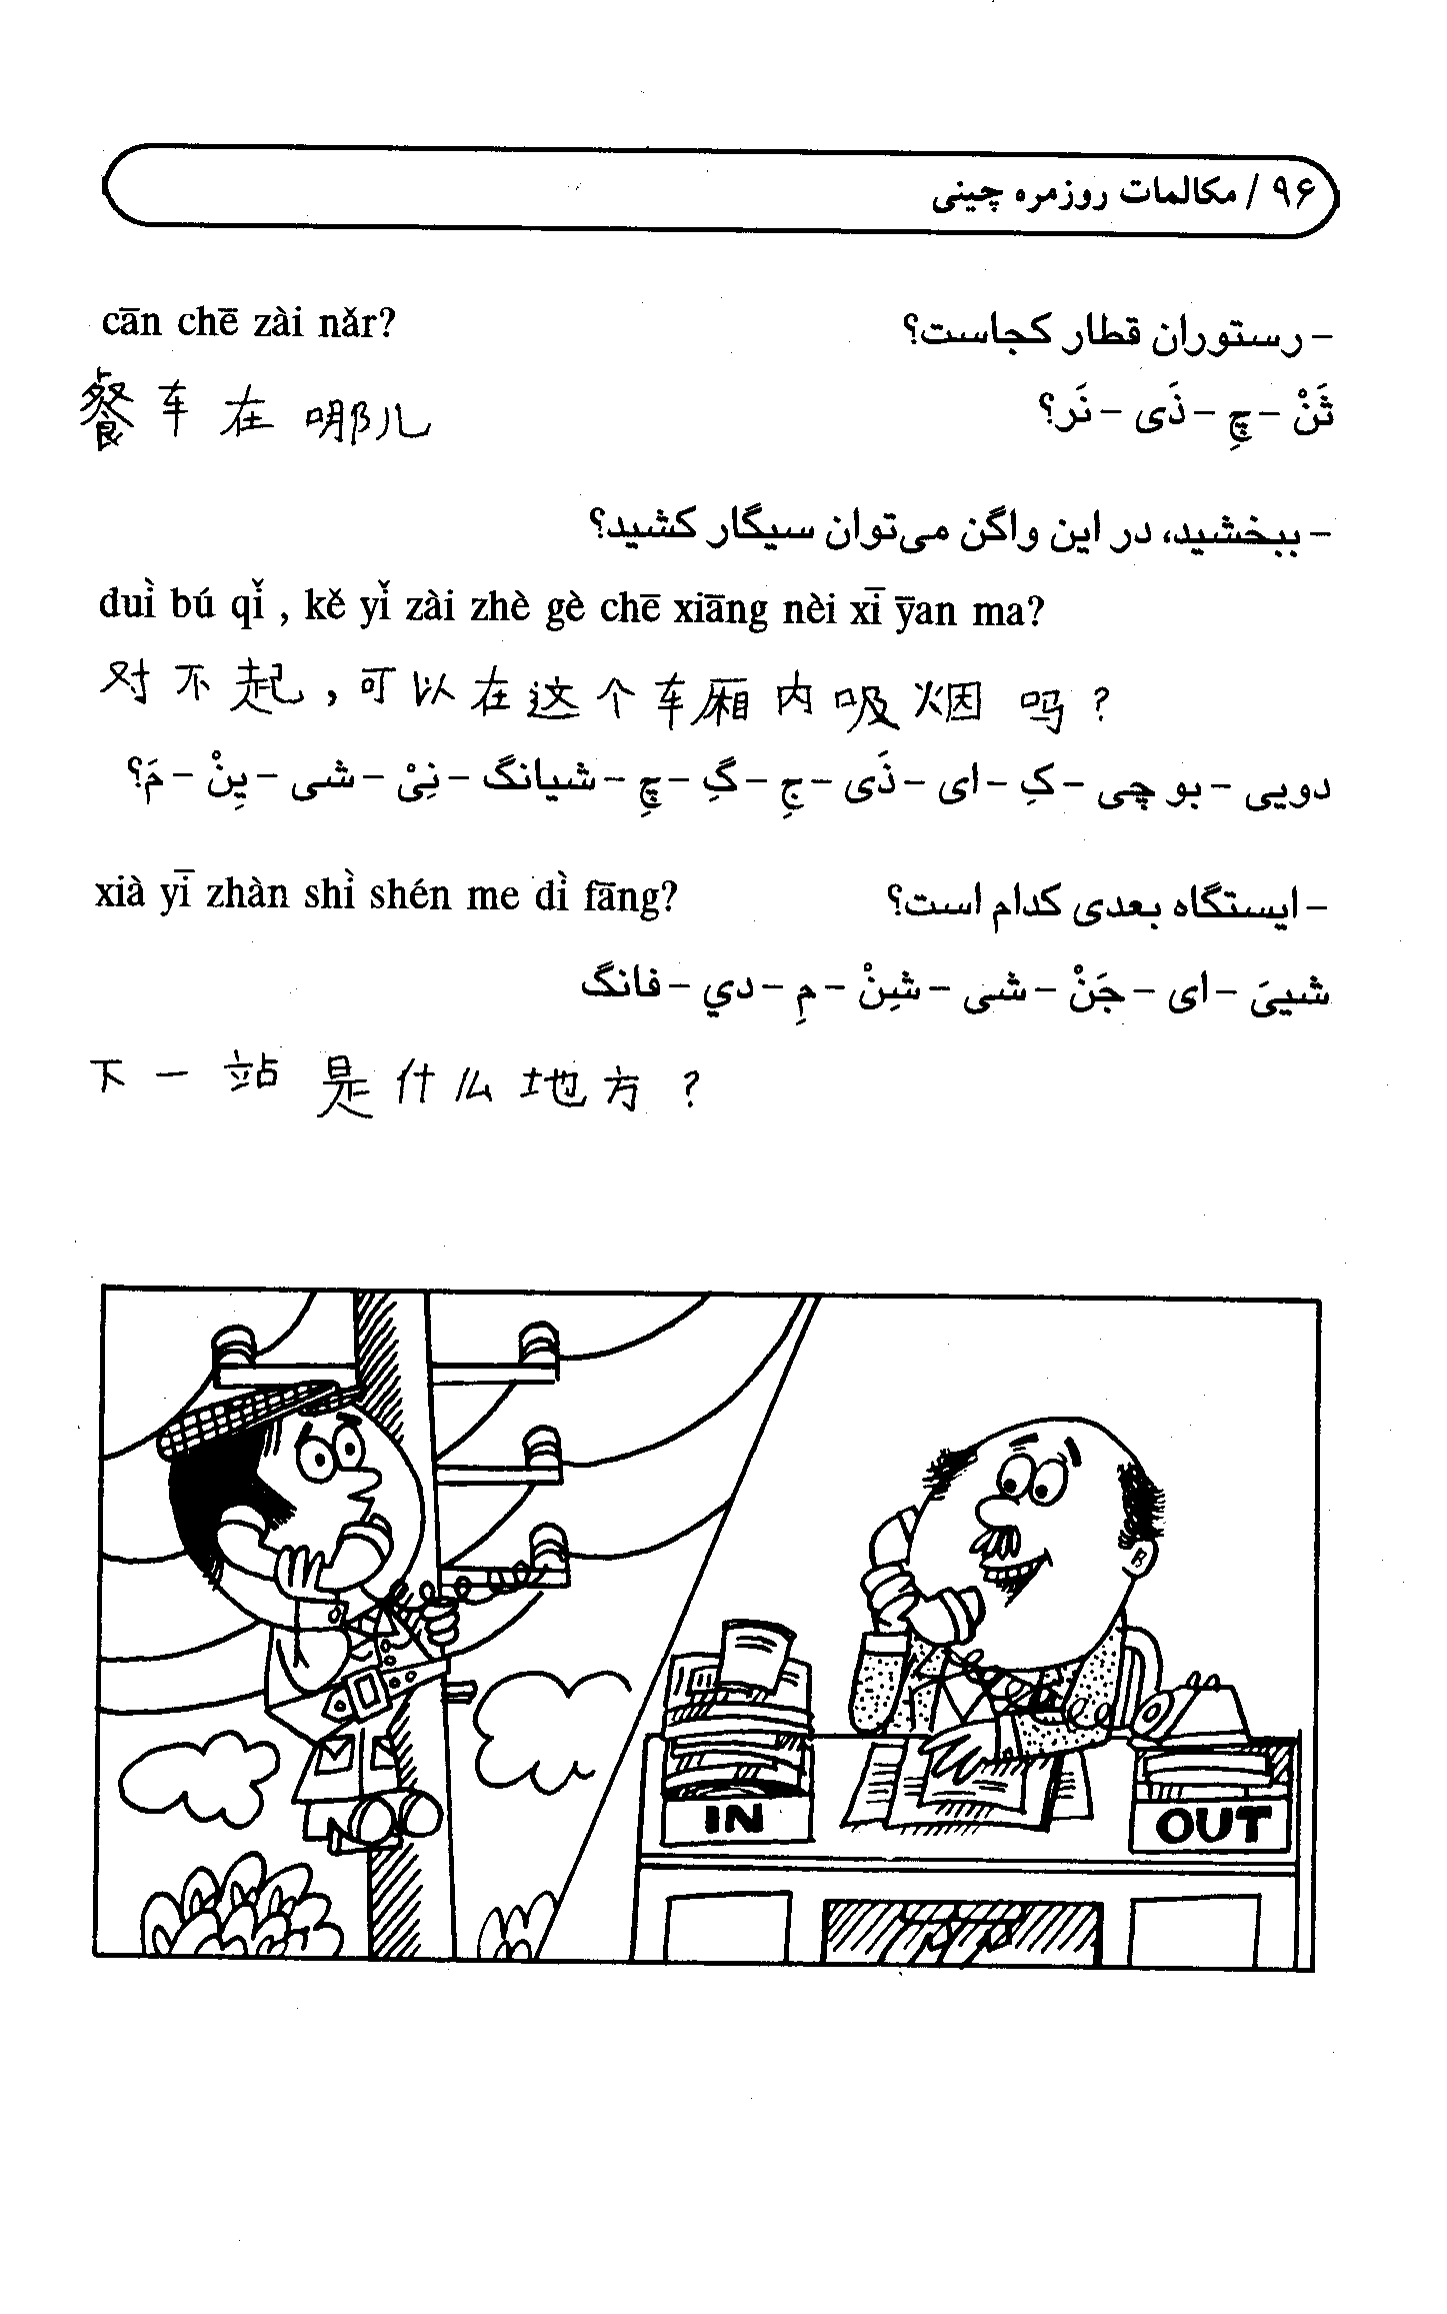 ۹۶ / مکالمات روزمره چینی
– رستوران قطار کجاست؟
cān chē zài nǎr?
ثَنْ – چِ – ذَی – نَر؟
餐车在哪儿
– ببخشید، در این واگن می‌توان سیگار کشید؟
duì bú qǐ , kě yǐ zài zhè gè chē xiāng nèi xī ȳan ma?
对不起,可以在这个车厢内吸烟吗?
دویی – بو چی – کِ – ای – ذَی – جِ – گِ – چِ – شیانگ – نِیْ – شی – یِنْ – مَ؟
– ایستگاه بعدی کدام است؟
xià yī zhàn shì shén me dì fāng?
شییَ – ای – جَنْ – شی – شِنْ – مِ – دي – فانگ
下一站是什么地方?
IN
OUT